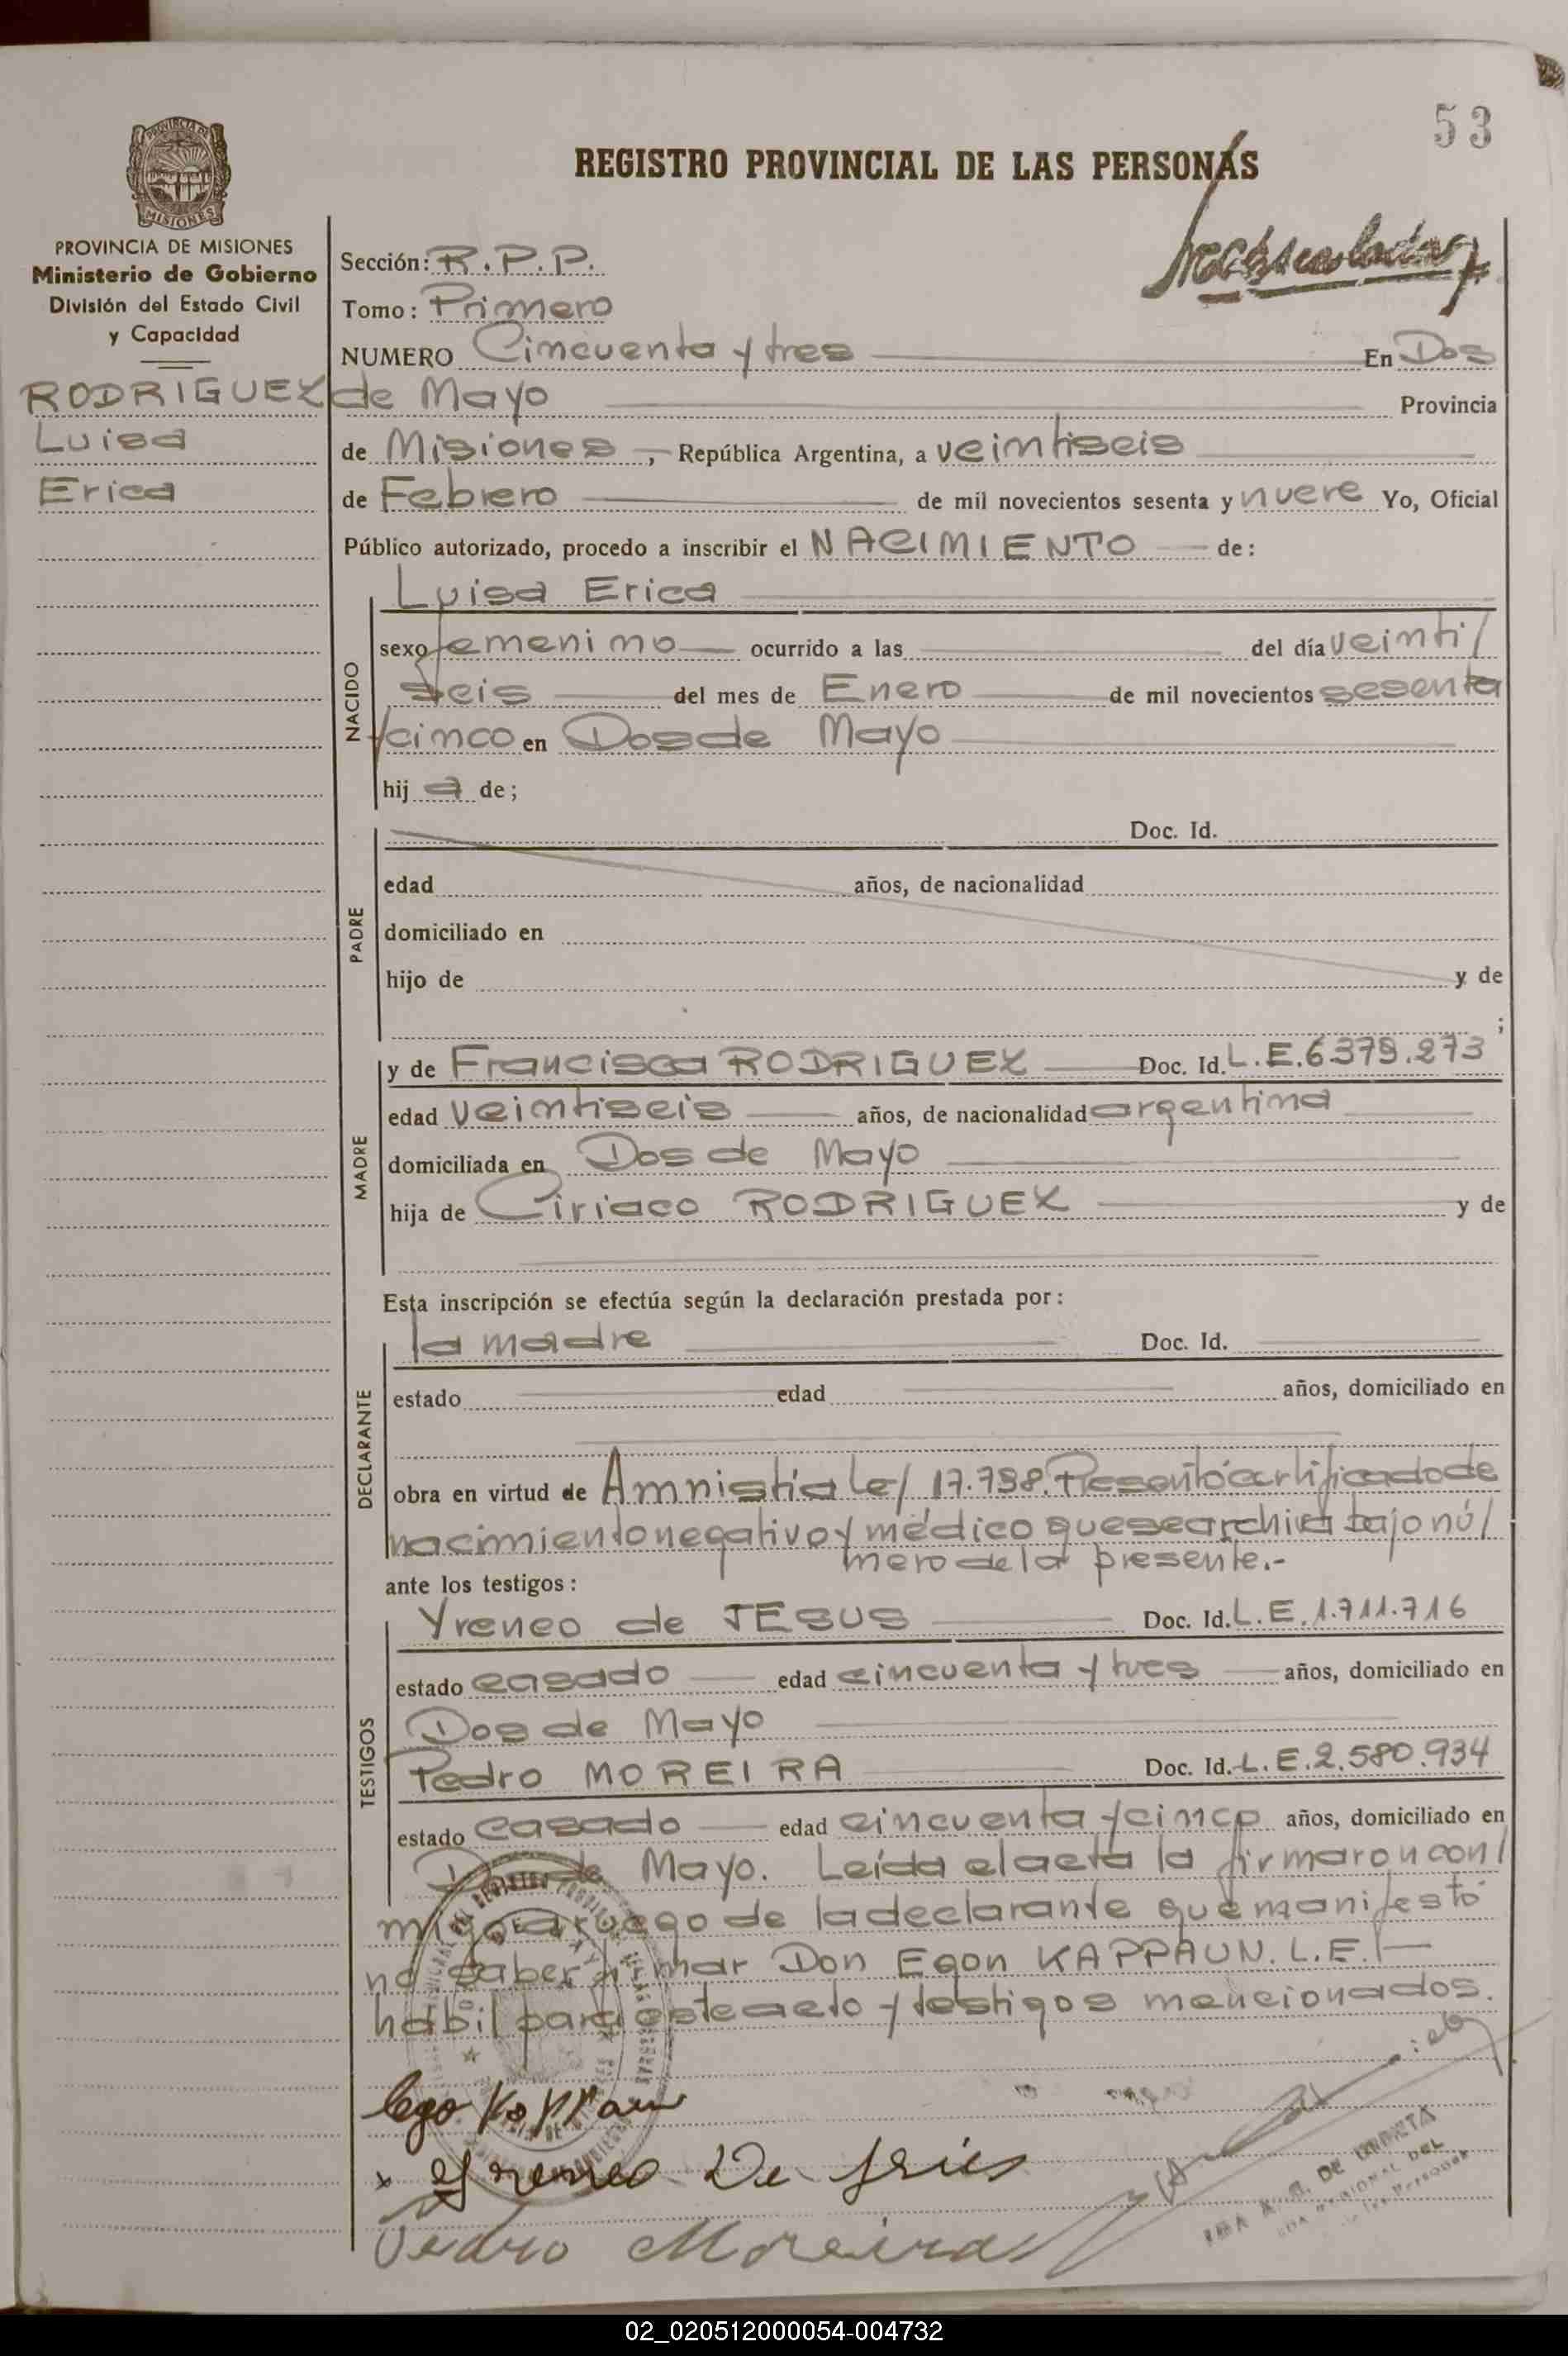 53
REGISTRO PROVINCIAL DE LAS PERSONAS
PROVINCIA DE
MISIONES
PROVINCIA DE MISIONES
Ministerio de Gobierno
División del Estado Civil
y Capacidad
RODRIGUEZ
Luisa
Erica
Sección: R.P.P.
Tomo: Primero
NUMERO Cincuenta y tres En Dos
de Mayo Provincia
de Misiones, República Argentina, a veintiseis
de Febrero de mil novecientos sesenta y nueve Yo, Oficial
Público autorizado, procedo a inscribir el NACIMIENTO de:
NACIDO
Luisa Erica
sexo femenino ocurrido a las del día veinti/
seis del mes de Enero de mil novecientos sesenta
y cinco en Dos de Mayo
hij a de;
PADRE
Doc. Id.
edad años, de nacionalidad
domiciliado en
hijo de y de
;
MADRE
y de Francisca RODRIGUEZ Doc. Id. L.E.6.379.273
edad veintiseis años, de nacionalidad argentina
domiciliada en Dos de Mayo
hija de Ciriaco RODRIGUEZ y de
Esta inscripción se efectúa según la declaración prestada por:
DECLARANTE
la madre Doc. Id.
estado edad años, domiciliado en
obra en virtud de Amnistía Ley 17.798. Presentó certificado de
nacimiento negativo y médico que se archiva bajo nú/
mero de la presente.-
ante los testigos:
TESTIGOS
Yreneo de JESUS Doc. Id. L.E.1.711.716
estado casado edad cincuenta y tres años, domiciliado en
Dos de Mayo
Pedro MOREIRA Doc. Id. L.E.2.580.934
estado casado edad cincuenta y cinco años, domiciliado en
Dos de Mayo. Leída el acta la firmaron con/
migo a ruego de la declarante que manifestó
no saber firmar Don Egon KAPPAUN. L.E./
hábil para este acto y testigos mencionados.
Ego Kappaun
x Yreneo De Jesús
Pedro Moreira
02_020512000054-004732